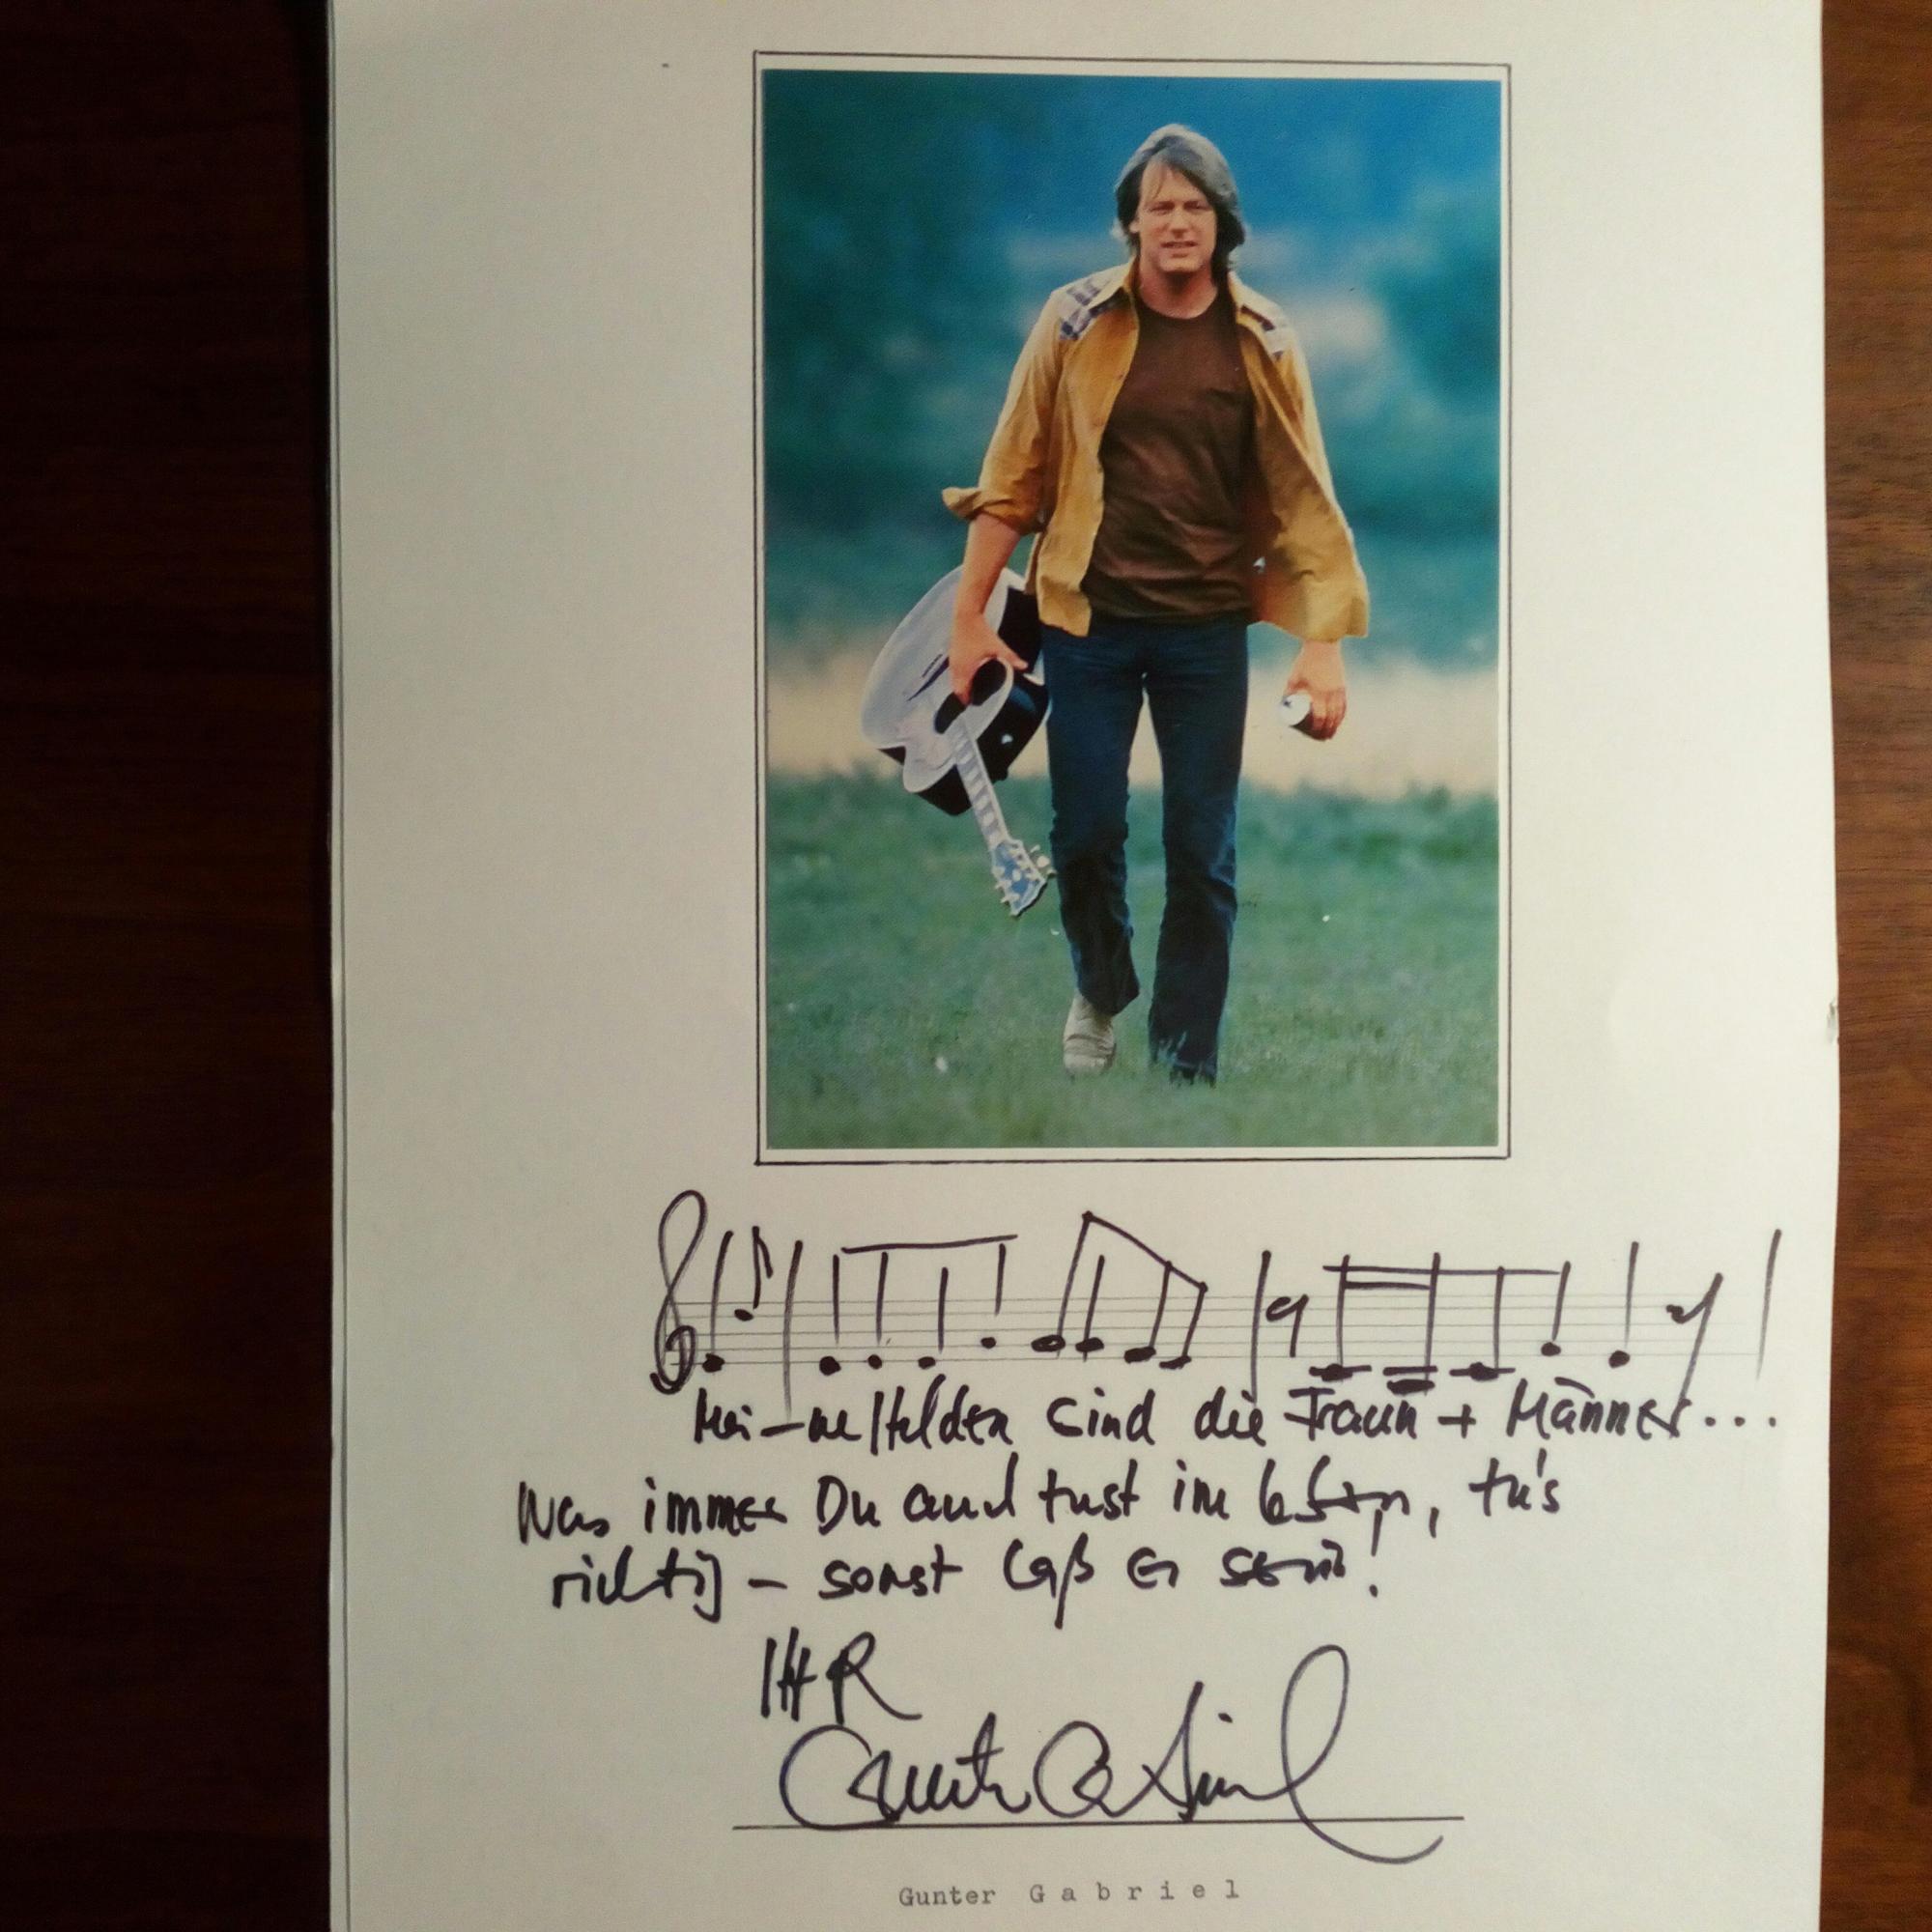 Mei–ne/Helden sind die Fraun + Männer...
Was immer Du auch tust im Leben, tu's
richtig – sonst laß es sein!
IHR
Gunter Gabriel
Gunter Gabriel